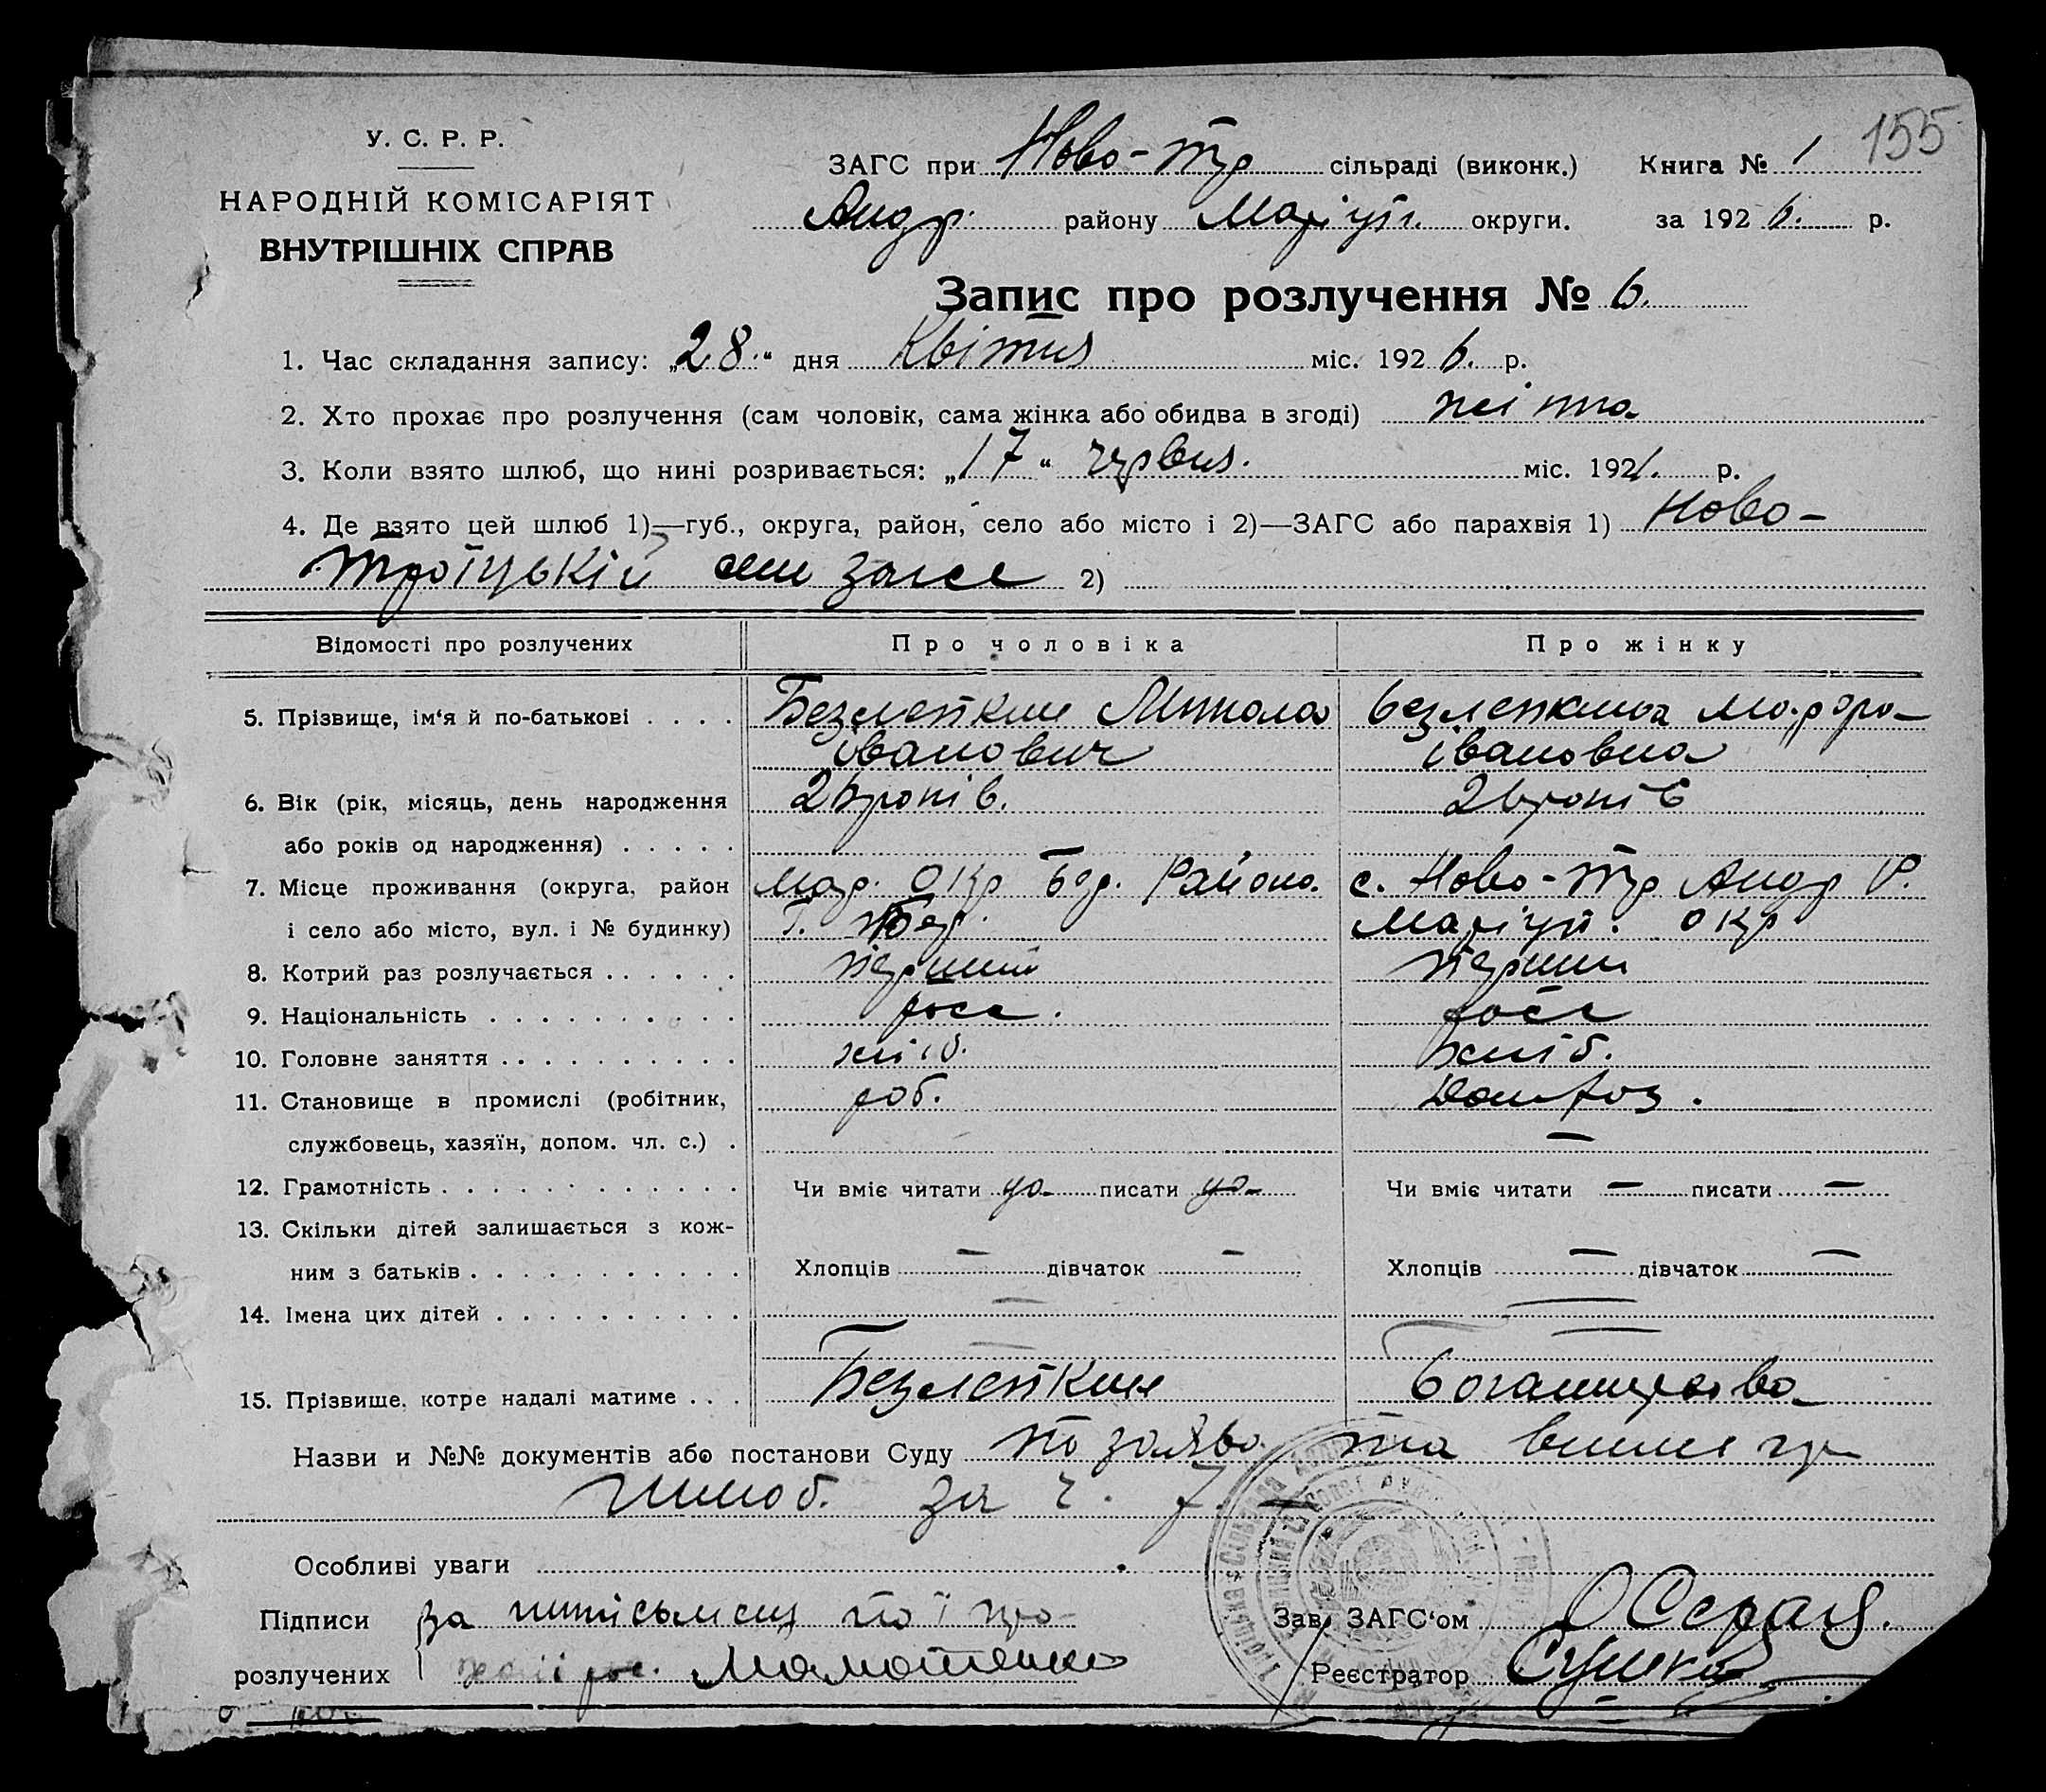 155
У. С. Р. Р.
НАРОДНІЙ КОМІСАРІЯТ
ВНУТРІШНІХ СПРАВ
ЗАГС при Ново-Тр сільраді (виконк.) Книга № 1
Андр. району Маріуп. округи. за 1926. р.
Запис про розлучення № 6.
1. Час складання запису: „28.“ дня Квітня міс. 1926. р.
2. Хто прохає про розлучення (сам чоловік, сама жінка або обидва в згоді)
3. Коли взято шлюб, що нині розривається: „17“ червня. міс. 1921. р.
4. Де взято цей шлюб 1)—губ., округа, район, село або місто і 2)—ЗАГС або парахвія 1) Ново-
Троїцькій загсе 2)
Відомості про розлучених Про чоловіка Про жінку
5. Прізвище, ім‘я й по-батькові . . . . Безлепкин Микола Безлепкина
іванович івановна
6. Вік (рік, місяць, день народження
або років од народження) . . . . .
7. Місце проживання (округа, район Мар. Окр Бер. Района. с. Ново-Тр Андр Р.
і село або місто, вул. і № будинку) Г. Бер. Маріуп. окр
8. Котрий раз розлучається . . . . . . перший перший
9. Національність . . . . . . . . . . росс. росс
10. Головне заняття . . . . . . . . . . хліб. хліб.
11. Становище в промислі (робітник, роб. домхоз.
службовець, хазяїн, допом. чл. с.) . —
12. Грамотність . . . . . . . . . . . . Чи вміє читати да писати да Чи вміє читати — писати —
13. Скільки дітей залишається з кож-
ним з батьків . . . . . . . . . . . Хлопців — дівчаток — Хлопців — дівчаток —
14. Імена цих дітей . . . . . . . . . . — —
15. Прізвище, котре надалі матиме . . . Безлепкин
Назви и №№ документів або постанови Суду по заяве та
шлюб. за ч. 7.
Особливі уваги
Підписи За по її про-
розлучених
Зав. ЗАГС‘ом
Реєстратор